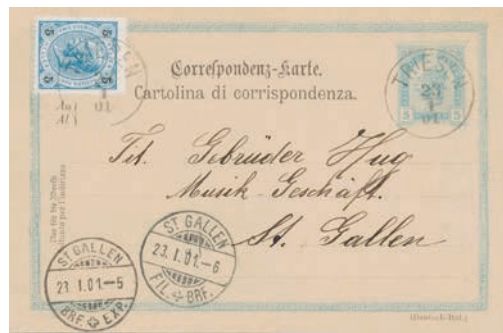 5 5
5 5
Correspondenz-Karte.
Cartolina di corrispondenza.
TRIESEN
23
1
01
5 5
Tit. Gebrüder Hug
Musik-Geschäft.
St. Gallen
ST GALLEN
23. I. 01.–6
FIL. BRF.
ST GALLEN
23. I. 01.–5
BRF. EXP.
(Deutsch-Ital.)